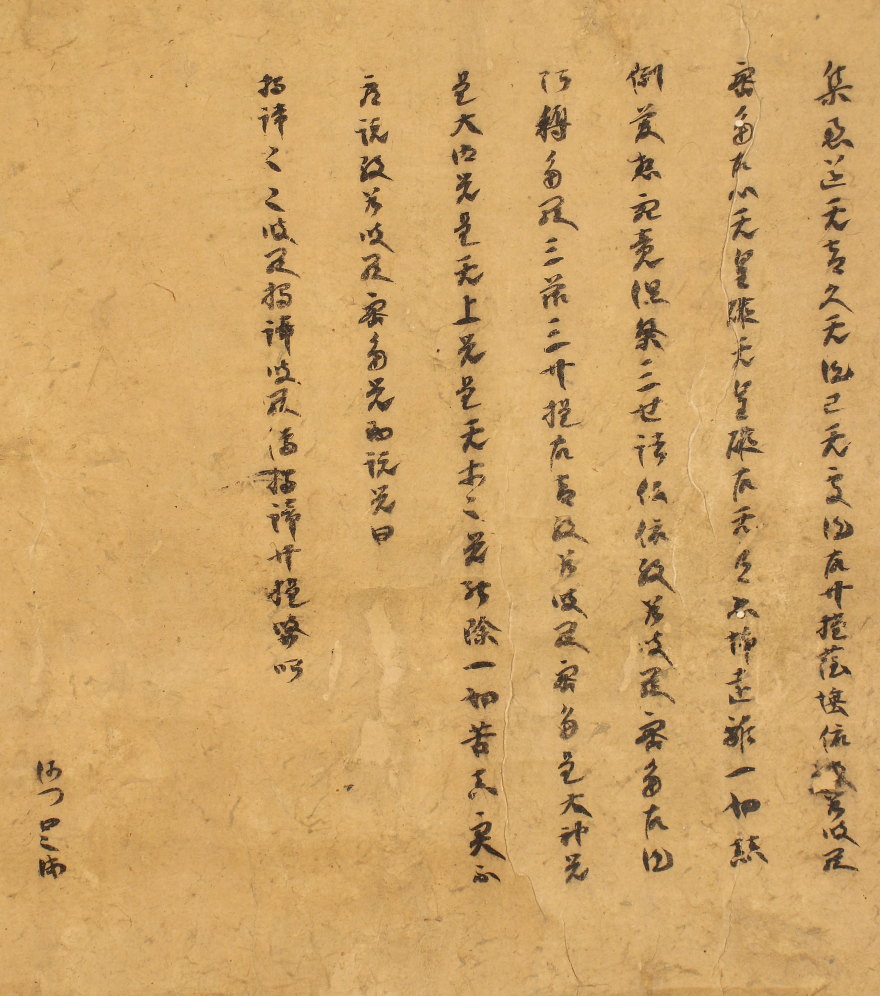 集滅道无智亦无得已无所得故菩提薩埵依般若波羅
密多故心无罣礙无罣礙故无有恐怖遠離一切顛
倒夢想究竟涅槃三世諸仏依般若波羅密多故得
阿耨多羅三藐三菩提故知般若波羅密多是大神咒
是大明咒是无上咒是无等々咒能除一切苦真實不
虛說般若波羅密多咒即說咒曰
揭諦々々波羅揭諦波羅僧揭諦菩提呵
沙門